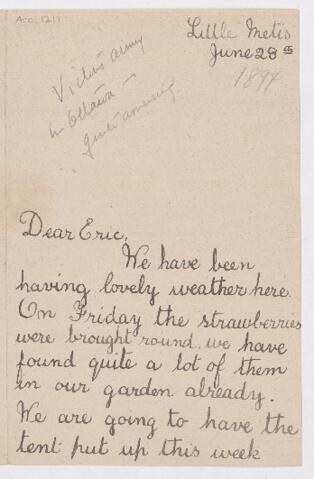 Acc. 1211
Little Metis
June 28th
1894
Victo's army
in Ottawa —
quite amusing
Dear Eric,
We have been
having lovely weather here.
On Friday the strawberries
were brought round, we have
found quite a lot of them
in our garden already.
We are going to have the
tent put up this week